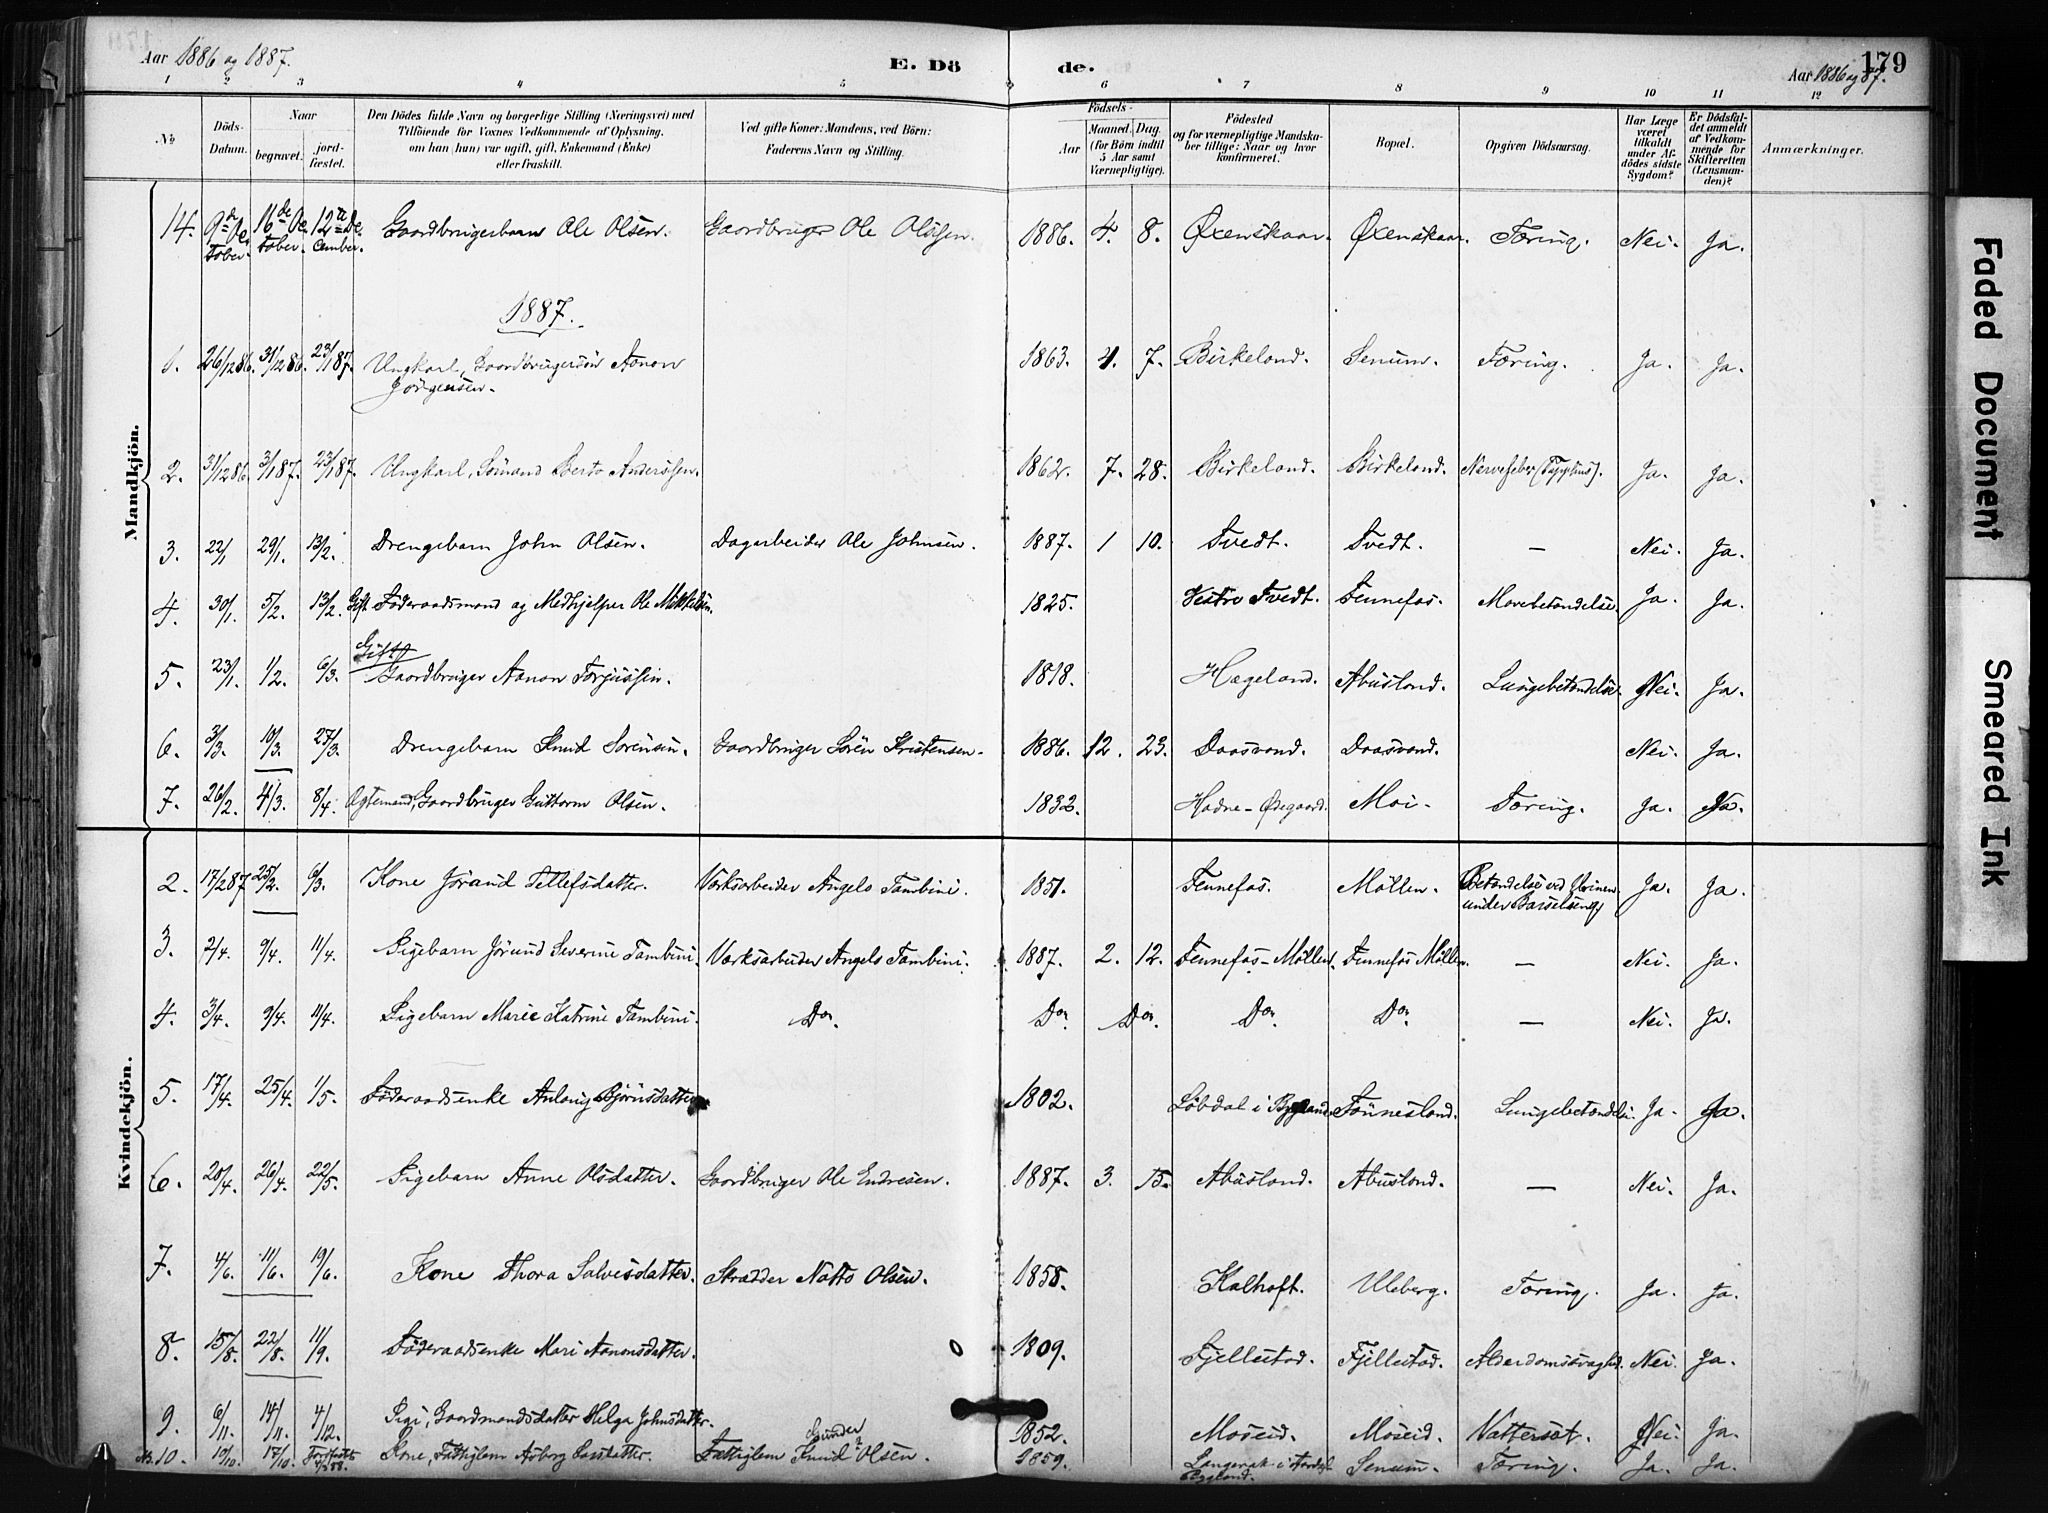 Aar 1886 og 1887.
E. Dö
de.
179
Aar 1886 og 87.
1 2 3 4 5 6 7 8 9 10 11 12
No
Döds-Datum.
Naar
begravet.
jord-fæstet.
Den Dödes fulde Navn og borgerlige Stilling (Næringsvei) med
Tilföiende for Voxnes Vedkommende af Oplysning,
om han (hun) var ugift, gift, Enkemand (Enke)
eller fraskilt.
Ved gifte Koner: Mandens, ved Börn:
Faderens Navn og Stilling.
Födsels-
Aar
Maaned. Dag.
(for Börn indtil
5 Aar samt
Værnepligtige).
Födested
og for værnepligtige Mandska-
ber tillige: Naar og hvor
konfirmeret.
Bopæl.
Opgiven Dödsaarsag.
Har Læge
været
tilkaldt
under Af-
dödes sidste
Sygdom?
Er Dödsfal-
det anmeldt
af Vedkom-
mende for
Skifteretten
(Lensman-
den)?
Anmærkninger.
Mandkjön.
14. 9de Oc-tober. 16de Oc-tober. 12te De-cember. Gaardbrugerbarn Ole Olsen. Gaardbruger Ole Olsen. 1886. 4. 8. Øxenskaar. Øxenskaar. Tæring. Nei. Ja.
1887.
1. 26/12 86. 31/12 86. 23/1 87. Ungkarl, Gaardbrugersøn Aanon
Jörgensen. 1863. 4. 7. Birkeland. Senum. Tæring. Ja. Ja.
2. 31/12 86. 3/1 87. 23/1 87. Ungkarl, Sömand Berto Anderssen. 1862. 7. 28. Birkeland. Birkeland. Nervefeber (Typhus). Ja. Ja.
3. 22/1 29/1. 13/2. Drengebarn John Olsen. Dagarbeider Ole Johnsen. 1887. 1 10. Tvedt. Tvedt. — Nei. Ja.
4. 30/1. 5/2. 13/2. Gift Föderaadsmand og Medhjelper Ole Mikkelsen. 1825. Vestre Tvedt. Fennefos. Mavebetændelse. Ja. Ja.
Gift
5. 23/1. 1/2. 6/3. Gaardbruger Aanon Torjussen. 1818. Hægeland. Abusland. Lungebetændelse. Nei. Ja.
6. 3/3. 10/3. 27/3. Drengebarn Knud Sörensen. Gaardbruger Sören Kristensen. 1886. 12. 23. Daasvand. Daasvand. Nei. Ja.
7. 26/2. 4/3. 8/4. Ægtemand, Gaardbruger Guttorm Olsen. 1832. Hodne-Øsgaard. Moi. Tæring. Ja. Ja.
Kvindekjön.
2. 17/2 87 25/2. 6/3. Kone Jörand Tellefsdatter. Værksarbeider Angelo Tambini. 1851. Fennefos. Möllen. Betændelse ved Urinen
under Barselseng Ja. Ja.
3. 2/4. 9/4. 11/4. Pigebarn Jörund Severine Tambini. Værksarbeider Angelo Tambini. 1887. 2. 12. Fennefos-Möllen. Fennefos Möllen. — Nei. Ja.
4. 3/4. 9/4. 11/4. Pigebarn Marie Katrine Tambini. Do. Do. Do. Do. Do. — Nei. Ja.
5. 17/4. 25/4. 1/5. Föderaadsenke Anlaug Björnsdatter 1802. Löbdal i Bygland. Tönnesland. Lungebetændelse. Ja. Ja.
6. 20/4. 26/4. 22/5. Pigebarn Anne Olsdatter. Gaardbruger Ole Endresen. 1887. 3. 15. Abusland. Abusland. — Nei. Ja.
7. 4/6. 11/6. 19/6. Kone Thora Salvesdatter. Skrædder Notto Olsen. 1858. Kalhoft. Uleberg. Tæring. Ja. Ja.
8. 15/8. 22/8. 11/9. Föderaadsenke Mari Aanonsdatter. 1809. Fjellestad. Fjellestad. Alderdomssvaghed. Nei. Ja.
9. 6/11. 14/11. 4/12. Pige, Gaardmandsdatter Helga Johnsdatter. 1852. Moseid. Moseid. Vattersot. Nei. Ja.
10. 10/10. 17/10. Kone, Fattiglem Aaborg Larsdatter. Fattiglem Knud Olsen. Gunder 1859. Langerak i
Bygland. Senum. Tæring. Ja. Ja.
Faded Document
Smeared Ink